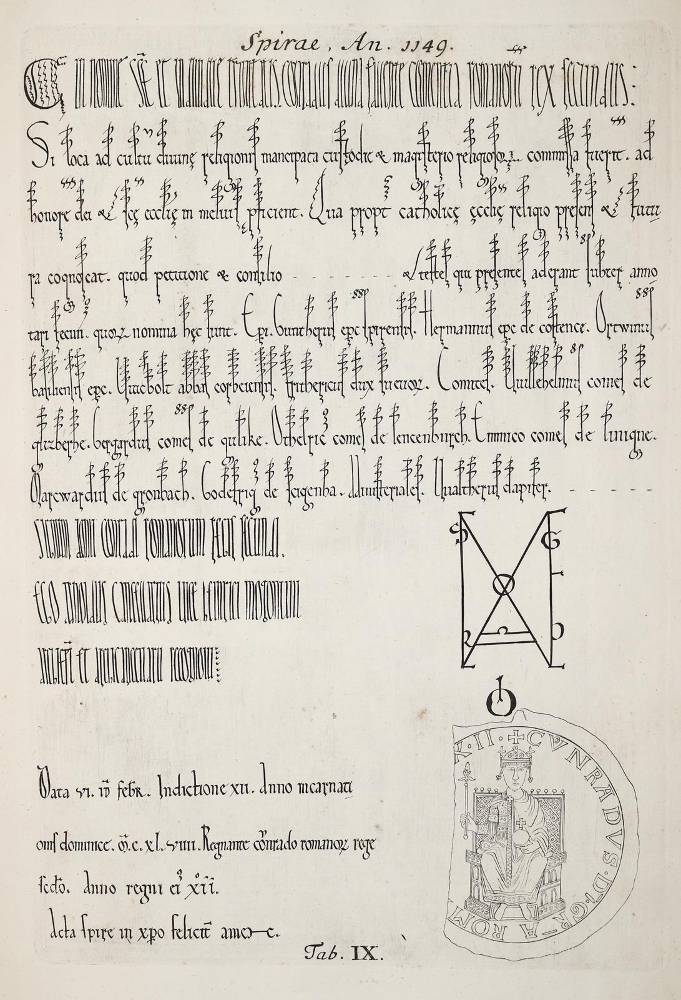 Spirae, An. 1149.
In nomine scē et individue trinitatis. Conradus divina favente clementia romanorū rex secundus:
Si loca ad cultū divinę religionis mancipata custodie & magisterio religiosorū commissa fuerit. ad
honorē dei & scę ecclię in melius pficient. Qua propt catholicę ęcclię religio presens & futu
ra cognoscat. quod petitione & consilio - - - - - - - & testes qui presentes aderant subter anno
tari fecim. quorū nomina hęc sunt. Epi. Guntherus epc spirensis. Hermannus epc de costence. Ortwinus
basiliensis epc. Wicbolt abbas corbeiensis. fridhericus dux suevorū. Comites. Willehelmus comes de
comes de comes de lencenburch. Emmico comes de liningē.
Marcwardus de gronbach. Godefriꝗ de Ministeriales. Waltherus dapifer. - - - - -
Signum domni Conradi romanorum regis secundi.
Ego Arnoldus cancellarius vice heinrici mogontini
archiepī et archicancellarii recognovi
S G I O R L
Data vi. id febr. Indictione xii. Anno incarnati
onis dominice. M. c. xl. viiii. Regnante cōnrado romanorū rege
secdo. Anno regni ei xii.
Acta spire in xpo feliciт amen.
A · II · + CVNRADVS · DI · GRA ROM
Tab. IX.